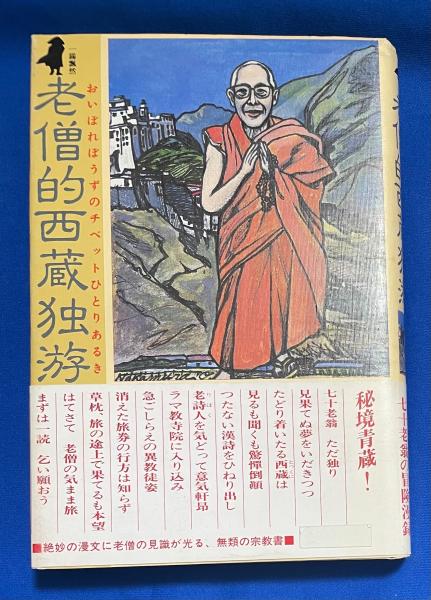 一錫飄然
老僧的西蔵独游
おいぼれぼうずのチベットひとりあるき
秘境青蔵！
七十老翁　ただ独り
見果てぬ夢をいだきつつ
たどり着いたる西蔵は
見るも聞くも驚憚倒顚
つたない漢詩をひねり出し
老詩人を気どって意気軒昂
ラマ教寺院に入り込み
急ごしらえの異教徒姿
消えた旅券の行方は知らず
草枕、旅の途上で果てるも本望
はてさて　老僧の気まま旅
まずは一読　乞い願おう
■絶妙の漫文に老僧の見識が光る、無類の宗教書■
七十老翁の冒険漫録